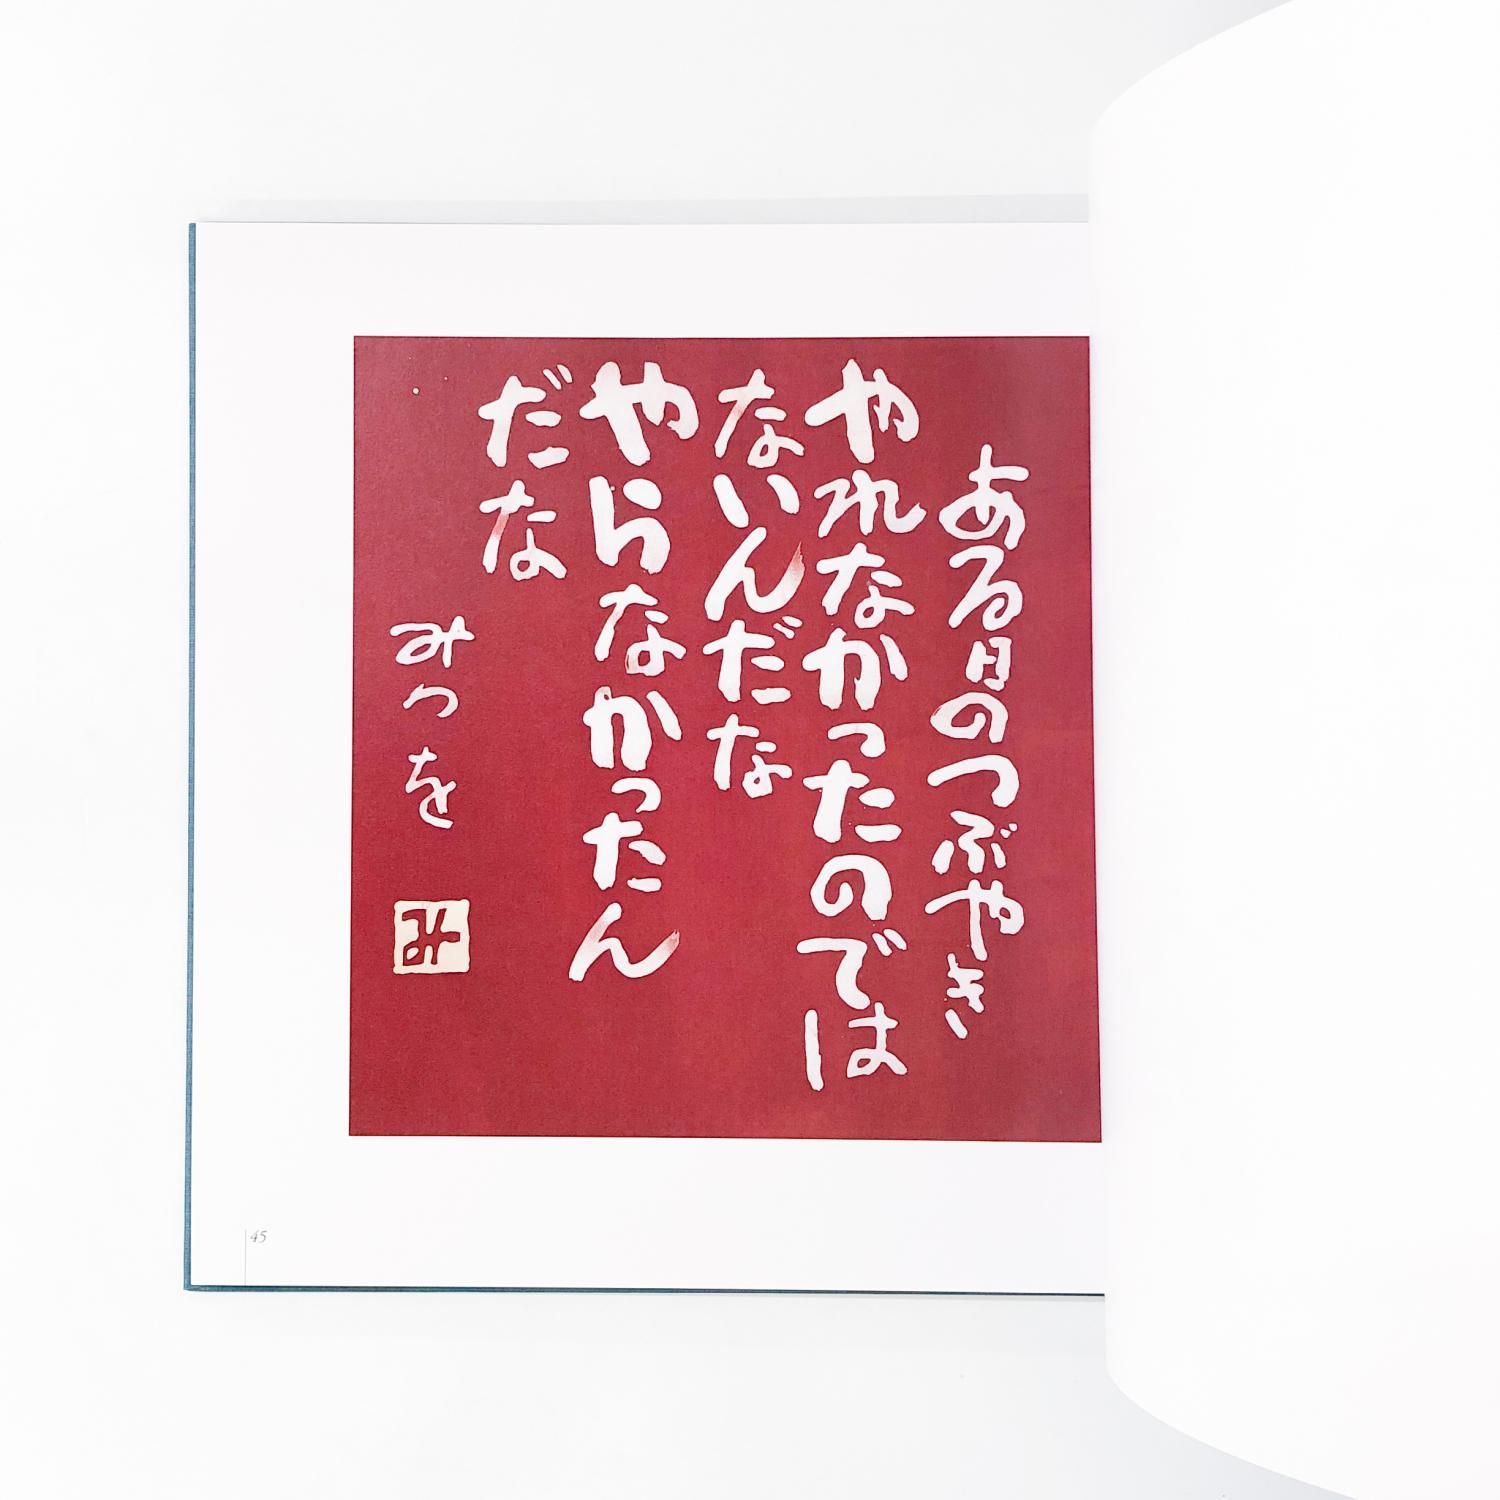 ある日のつぶやき
やれなかったのでは
ないんだな
やらなかったん
だな
みつを
み
45